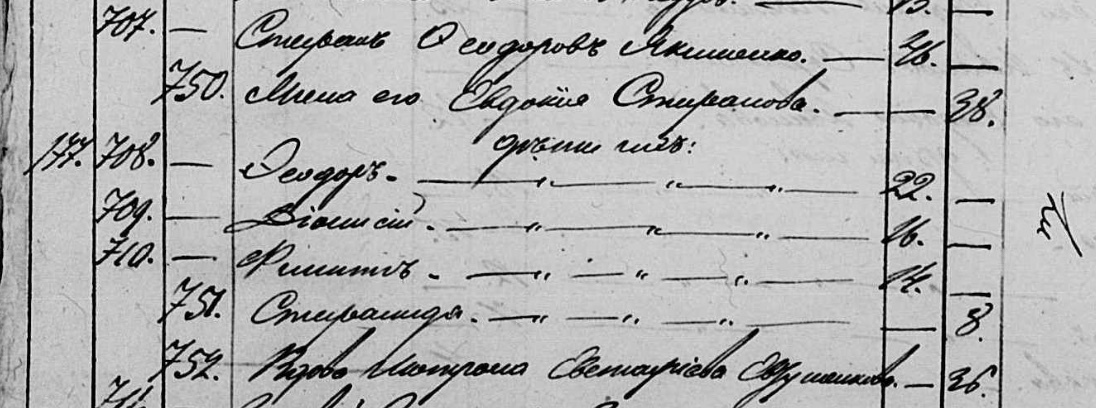 707. — Стефанъ Ѳеодоровъ Якименко. — 46. —
750. Жена его Евдокія Стефанова. — 38.
дѣти ихъ:
177. 708. — Ѳеодоръ. — „ — „ — „ — 22. —
709. — Діонисій. — „ — „ — „ — 16. —
710. — Филиппъ. — „ — „ — „ — 14. —
751. Стефанида. — „ — „ — „ — — 8.
752. Вдова Евстафіева — 36.